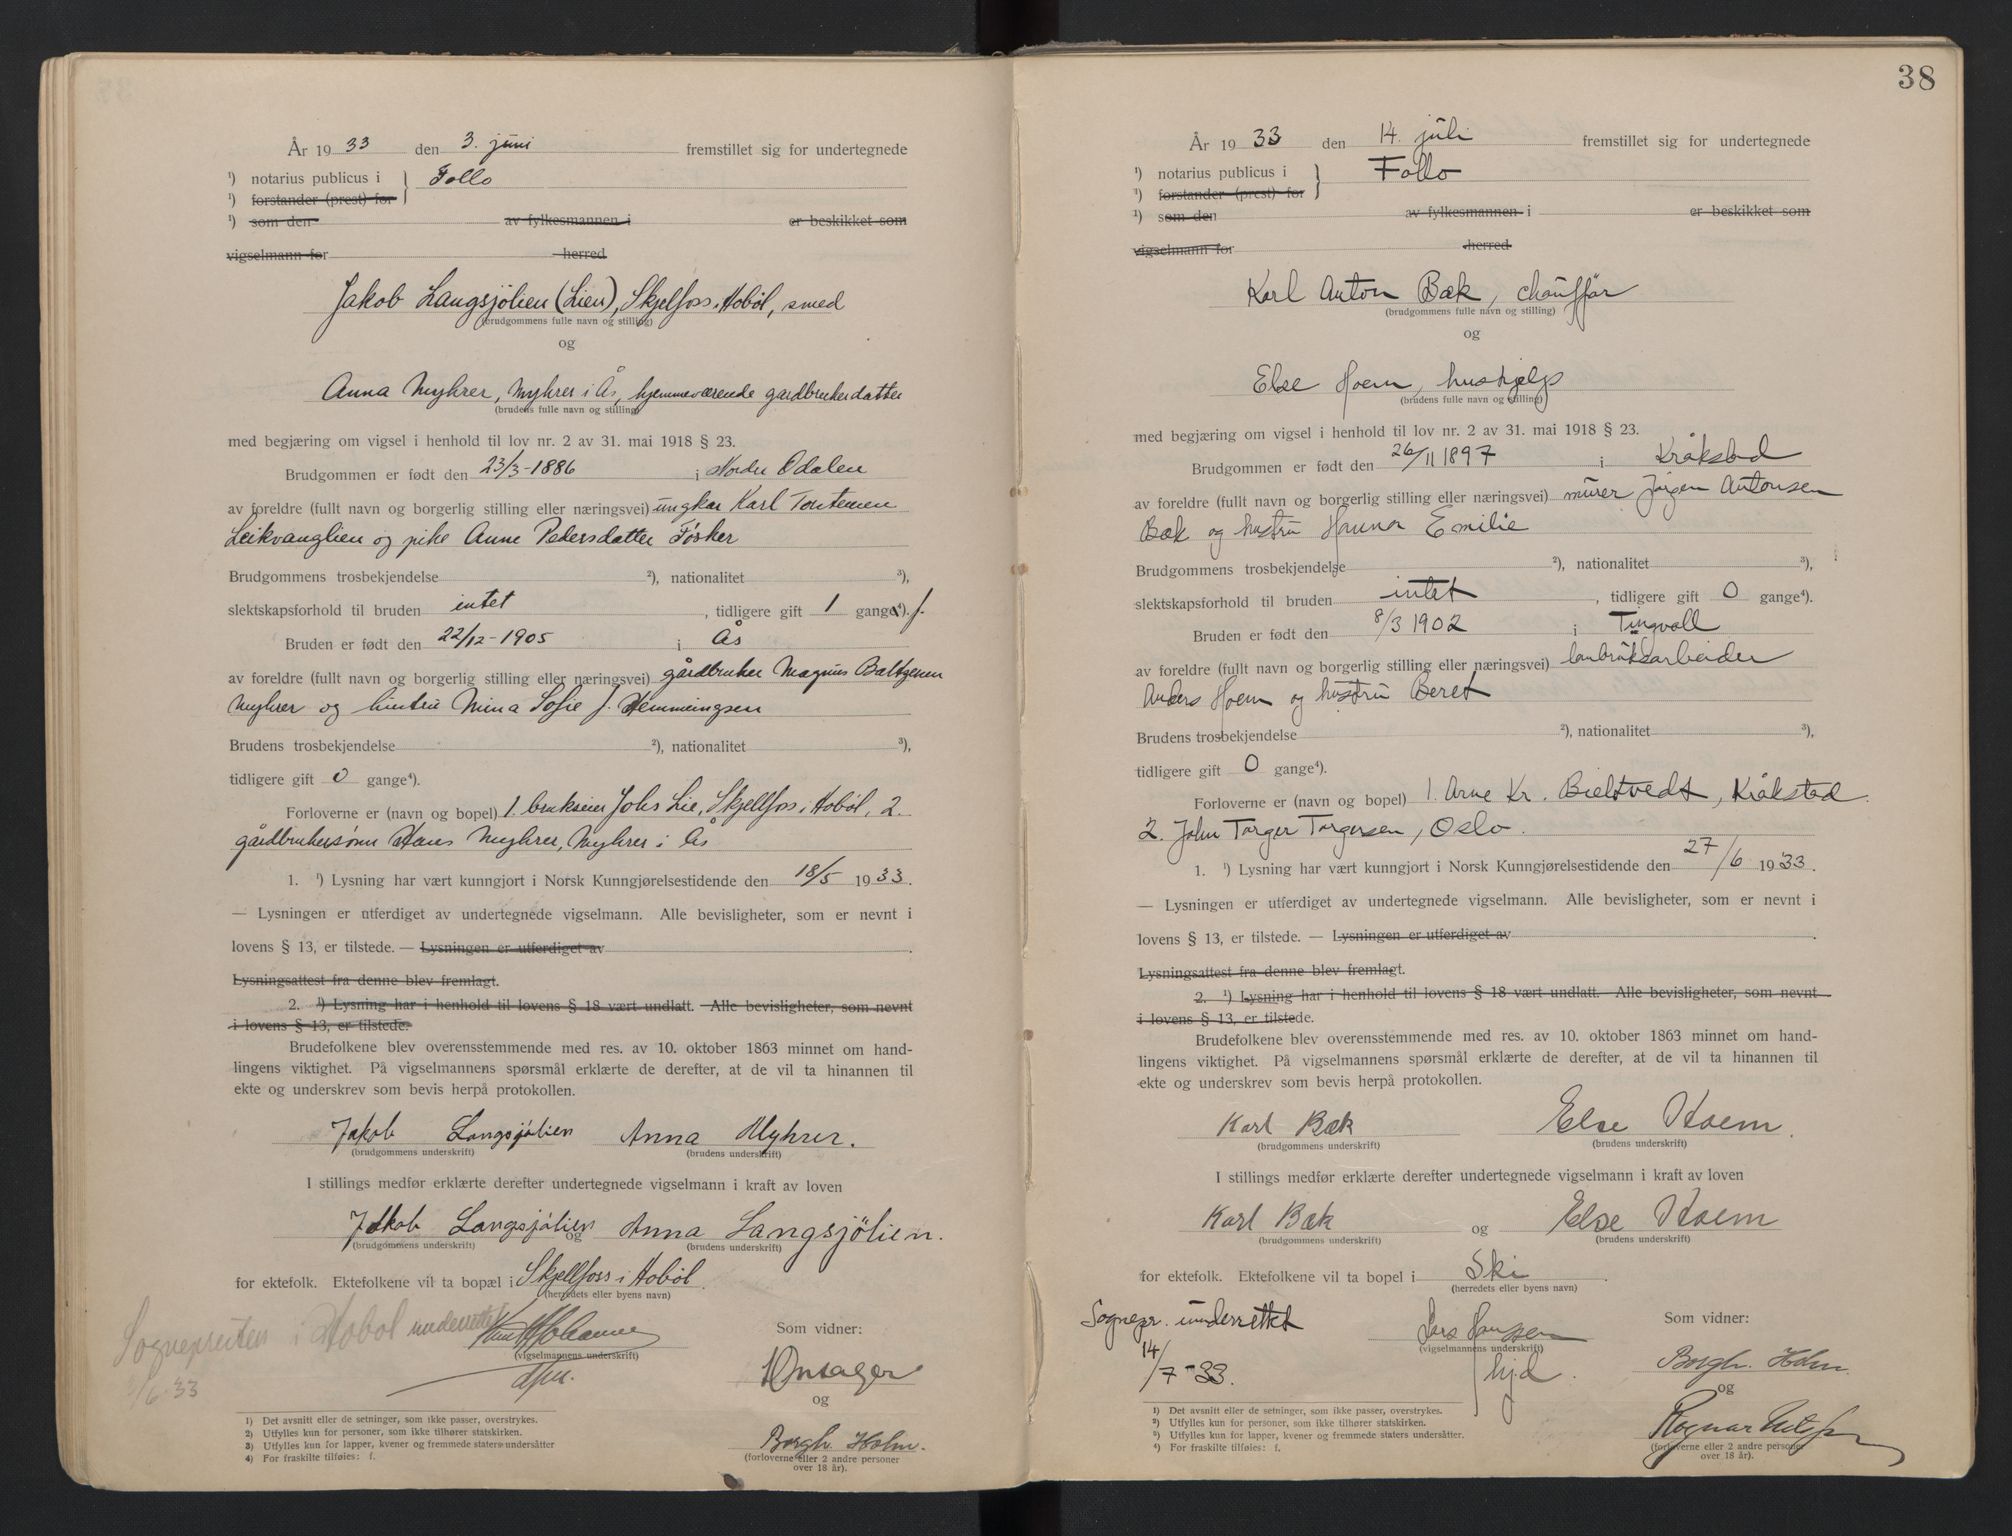 År 1933 den 3. juni fremstillet sig for undertegnede
¹) notarius publicus i } Follo
¹) forstander (prest) for
¹) som den av fylkesmannen i er beskikket som
vigselmann for herred
Jakob Langsjølien (Lien), Skjelfoss i Hobøl, smed
(brudgommens fulle navn og stilling)
og
Anna Myhrer, Myhrer i Ås, hjemmeværende gardbrukerdatter
(brudens fulle navn og stilling)
med begjæring om vigsel i henhold til lov nr. 2 av 31. mai 1918 § 23.
Brudgommen er født den 23/3-1886 i Nordre Odalen
av foreldre (fullt navn og borgerlig stilling eller næringsvei) ungkar Karl
Leikvanglien og pike Anne Pedersdatter
Brudgommens trosbekjendelse ²), nationalitet ³),
slektskapsforhold til bruden intet, tidligere gift 1 gange⁴). f.
Bruden er født den 22/12-1905 i Ås
av foreldre (fullt navn og borgerlig stilling eller næringsvei) gårdbruker Magnus Baltzersen
Myhrer og hustru Mina Sofie J. Hemmingsen
Brudens trosbekjendelse ²), nationalitet ³),
tidligere gift 0 gange⁴).
Forloverne er (navn og bopel) 1. brukseier Johs Lie, Skjellfoss i Hobøl, 2.
gårdbrukersønn Hans Myhrer, Myhrer i Ås
1. ¹) Lysning har vært kunngjort i Norsk Kunngjørelsestidende den 18/5 1933.
— Lysningen er utferdiget av undertegnede vigselmann. Alle bevisligheter, som er nevnt i
lovens § 13, er tilstede. — Lysningen er utferdiget av .
Lysningsattest fra denne blev fremlagt.
2. ¹) Lysning har i henhold til lovens § 18 vært undlatt. Alle bevisligheter, som nevnt
i lovens § 13, er tilstede.
Brudefolkene blev overensstemmende med res. av 10. oktober 1863 minnet om hand-
lingens viktighet. På vigselmannens spørsmål erklærte de derefter, at de vil ta hinannen til
ekte og underskrev som bevis herpå protokollen.
Jakob Langsjølien Anna Myhrer.
(brudgommens underskrift) (brudens underskrift)
I stillings medfør erklærte derefter undertegnede vigselmann i kraft av loven
Jakob Langsjølien og Anna Langsjølien.
(brudgommens underskrift) (brudens underskrift)
for ektefolk. Ektefolkene vil ta bopæl i Skjellfoss i Hobøl.
(herredets eller byens navn)
Sognepresten i Hobøl underrettet
/6-33
(vigselmannens underskrift)
Som vidner:
Onsager
og
Borgh. Holm.
(forloverne eller 2 andre personer
over 18 år).
1) Det avsnitt eller de setninger, som ikke passer, overstrykes.
2) Utfylles kun for personer, som ikke tilhører statskirken.
3) Utfylles kun for lapper, kvener og fremmede staters undersåtter
4) For fraskilte tilføies: f.
38
År 1933 den 14. juli fremstillet sig for undertegnede
¹) notarius publicus i } Follo
¹) forstander (prest) for
¹) som den av fylkesmannen i er beskikket som
vigselmann for herred
Karl Anton Bæk, chauffør
(brudgommens fulle navn og stilling)
og
Else Hoem, hushjelp
(brudens fulle navn og stilling)
med begjæring om vigsel i henhold til lov nr. 2 av 31. mai 1918 § 23.
Brudgommen er født den 26/11 1897 i Kråkstad
av foreldre (fullt navn og borgerlig stilling eller næringsvei) murer Jørgen Antonsen
Bæk og hustru Hanna Emilie
Brudgommens trosbekjendelse ²), nationalitet ³),
slektskapsforhold til bruden intet, tidligere gift 0 gange⁴).
Bruden er født den 8/3 1902 i Tingvoll
av foreldre (fullt navn og borgerlig stilling eller næringsvei) lanbruksarbeider
Anders Hoem og hustru Beret
Brudens trosbekjendelse ²), nationalitet ³),
tidligere gift 0 gange⁴).
Forloverne er (navn og bopel) 1. Arne Kr. Bieltvedt, Kråkstad.
2. John Torger Torgersen, Oslo.
1. ¹) Lysning har vært kunngjort i Norsk Kunngjørelsestidende den 27/6 1933.
— Lysningen er utferdiget av undertegnede vigselmann. Alle bevisligheter, som er nevnt i
lovens § 13, er tilstede. — Lysningen er utferdiget av .
Lysningsattest fra denne blev fremlagt.
2. ¹) Lysning har i henhold til lovens § 18 vært undlatt. Alle bevisligheter, som nevnt
i lovens § 13, er tilstede.
Brudefolkene blev overensstemmende med res. av 10. oktober 1863 minnet om hand-
lingens viktighet. På vigselmannens spørsmål erklærte de derefter, at de vil ta hinannen til
ekte og underskrev som bevis herpå protokollen.
Karl Bæk Else Hoem.
(brudgommens underskrift) (brudens underskrift)
I stillings medfør erklærte derefter undertegnede vigselmann i kraft av loven
Karl Bæk og Else Hoem
(brudgommens underskrift) (brudens underskrift)
for ektefolk. Ektefolkene vil ta bopel i Ski.
(herredets eller byens navn)
Sognepr. underrettet
14/7-33.
Lars Hanssen
(vigselmannens underskrift)
hjd.
Som vidner:
Borgh. Holm.
og
Ragnar
(forloverne eller 2 andre personer
over 18 år).
¹) Det avsnitt eller de setninger, som ikke passer, overstrykes.
²) Utfylles kun for personer, som ikke tilhører statskirken.
³) Utfylles kun for lapper, kvener og fremmede staters undersåtter.
⁴) For fraskilte tilføies: f.